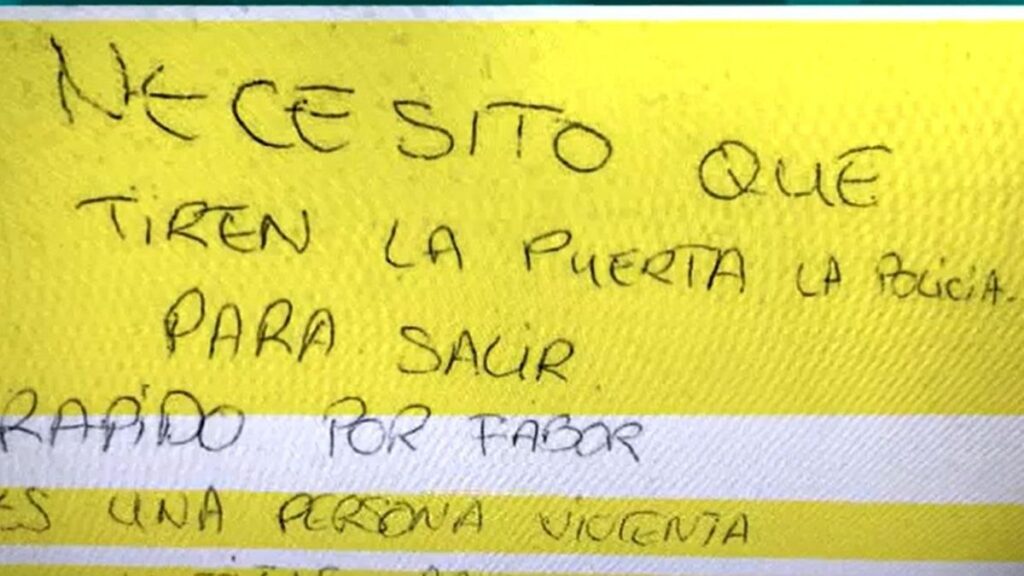 NECESITO QUE
TiREN LA PUERTA LA POLICIA.
PARA SALIR
RAPiDO POR FABOR
ES UNA PERSONA VIOLENTA